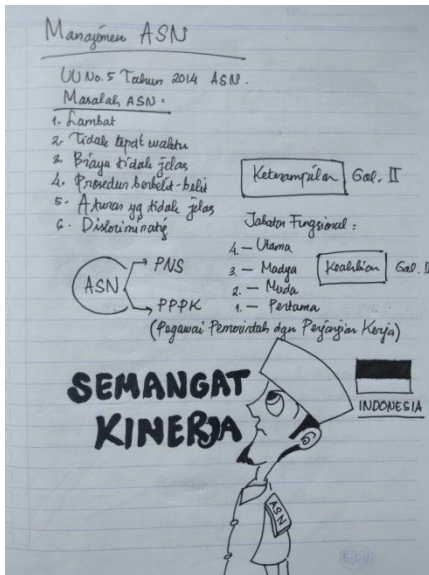 Manajemen ASN
UU No. 5 Tahun 2014 ASN.
Masalah ASN :
1. Lambat
2. Tidak tepat waktu
3. Biaya tidak jelas
4. Prosedur berbelit-belit
5. Aturan yg tidak jelas
6. Diskriminatif
Keterampilan Gol. II
Jabatan Fungsional :
4. – Utama
3. – Madya
2. – Muda
1. – Pertama
Keahlian Gol.
ASN
PNS
PPPK
(Pegawai Pemerintah dgn Perjanjian Kerja)
SEMANGAT
KINERJA
INDONESIA
ASN